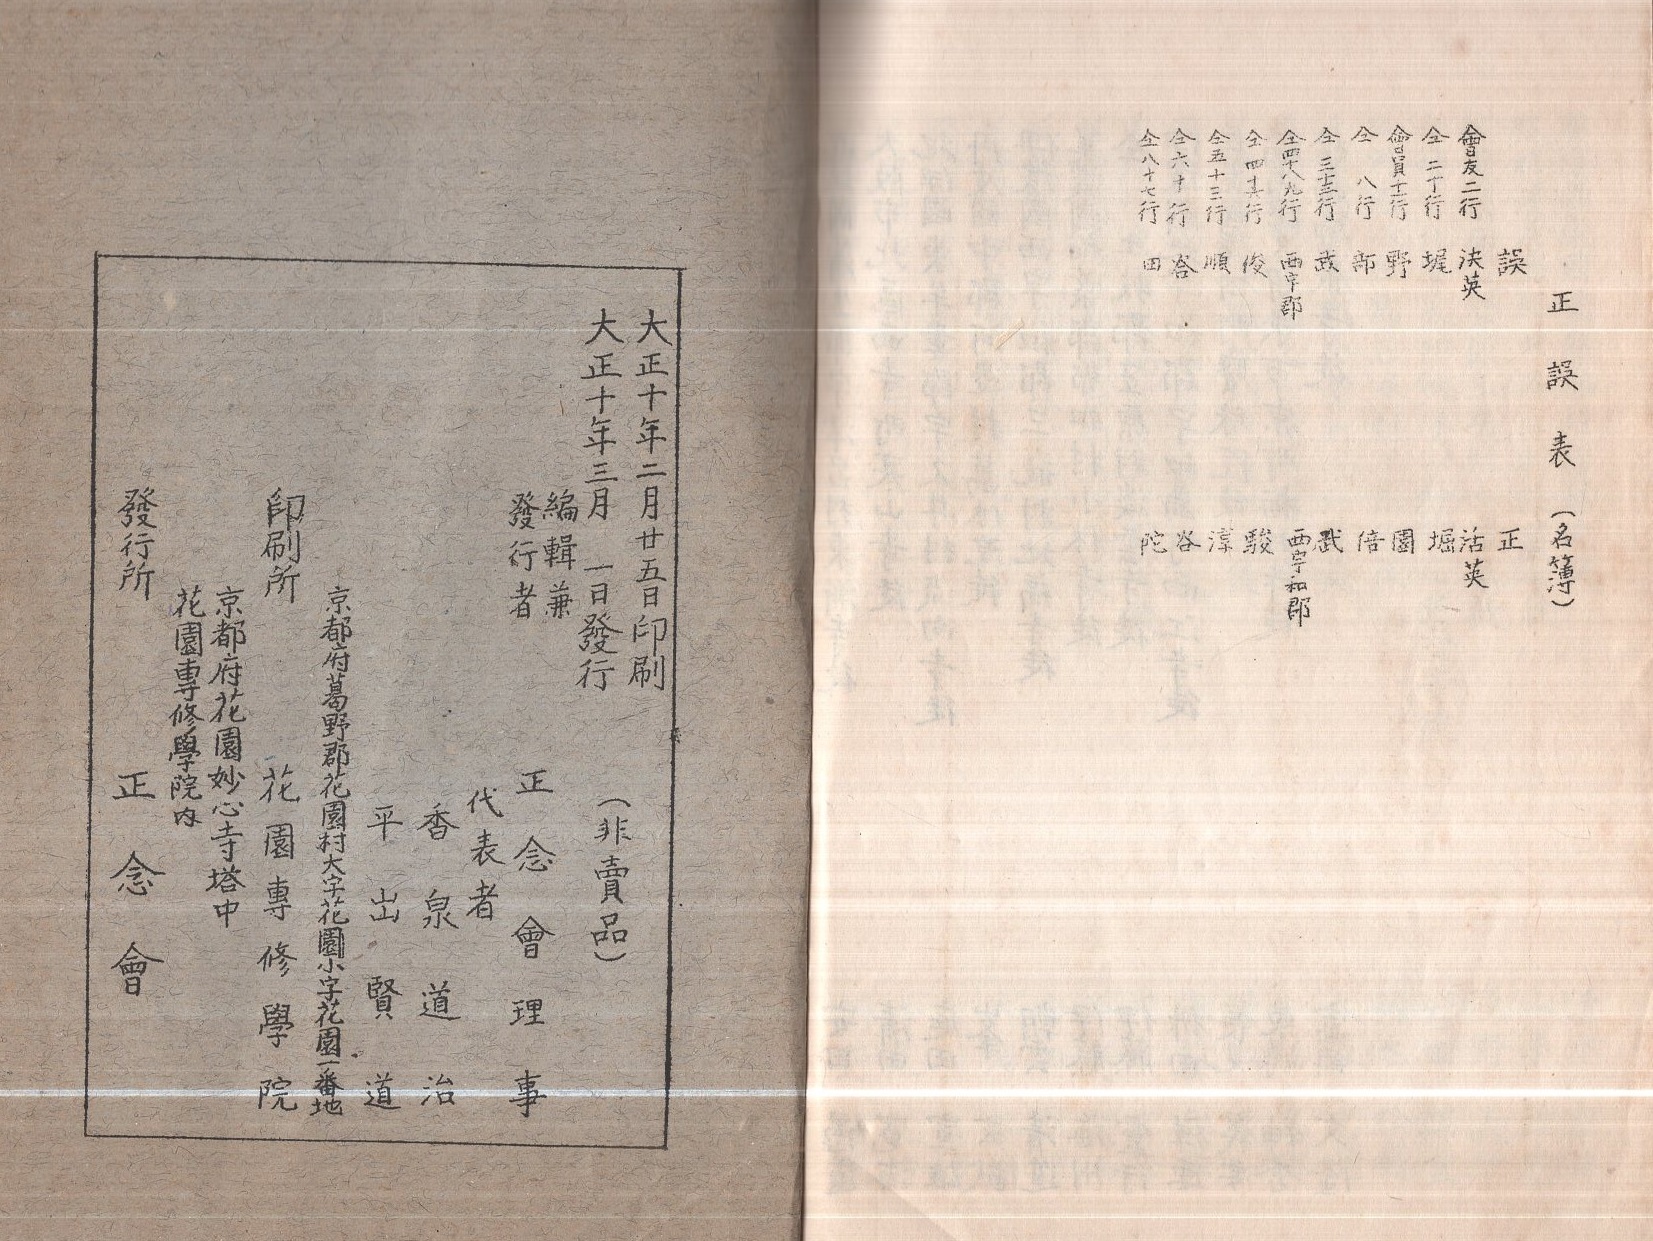 正誤表（名簿）
誤　正
會友二行　決英　活英
仝二十行　堀　堀
會員十一行　野　園
仝　八行　部　倍
仝三十三行　武　武
仝四十八九行　西宇郡　西宇和郡
仝四十六行　俊　駿
仝五十三行　順　淳
仝六十行　峇　谷
仝八十七行　田　陀
大正十年二月廿五日印刷
大正十年三月　一日發行
（非賣品）
編輯兼
發行者
正念會理事
代表者
香泉道治
平出賢道
京都府葛野郡花園村大字花園小字花園一番地
印刷所　花園專修學院
京都府花園妙心寺塔中
花園專修學院内
發行所　正念會